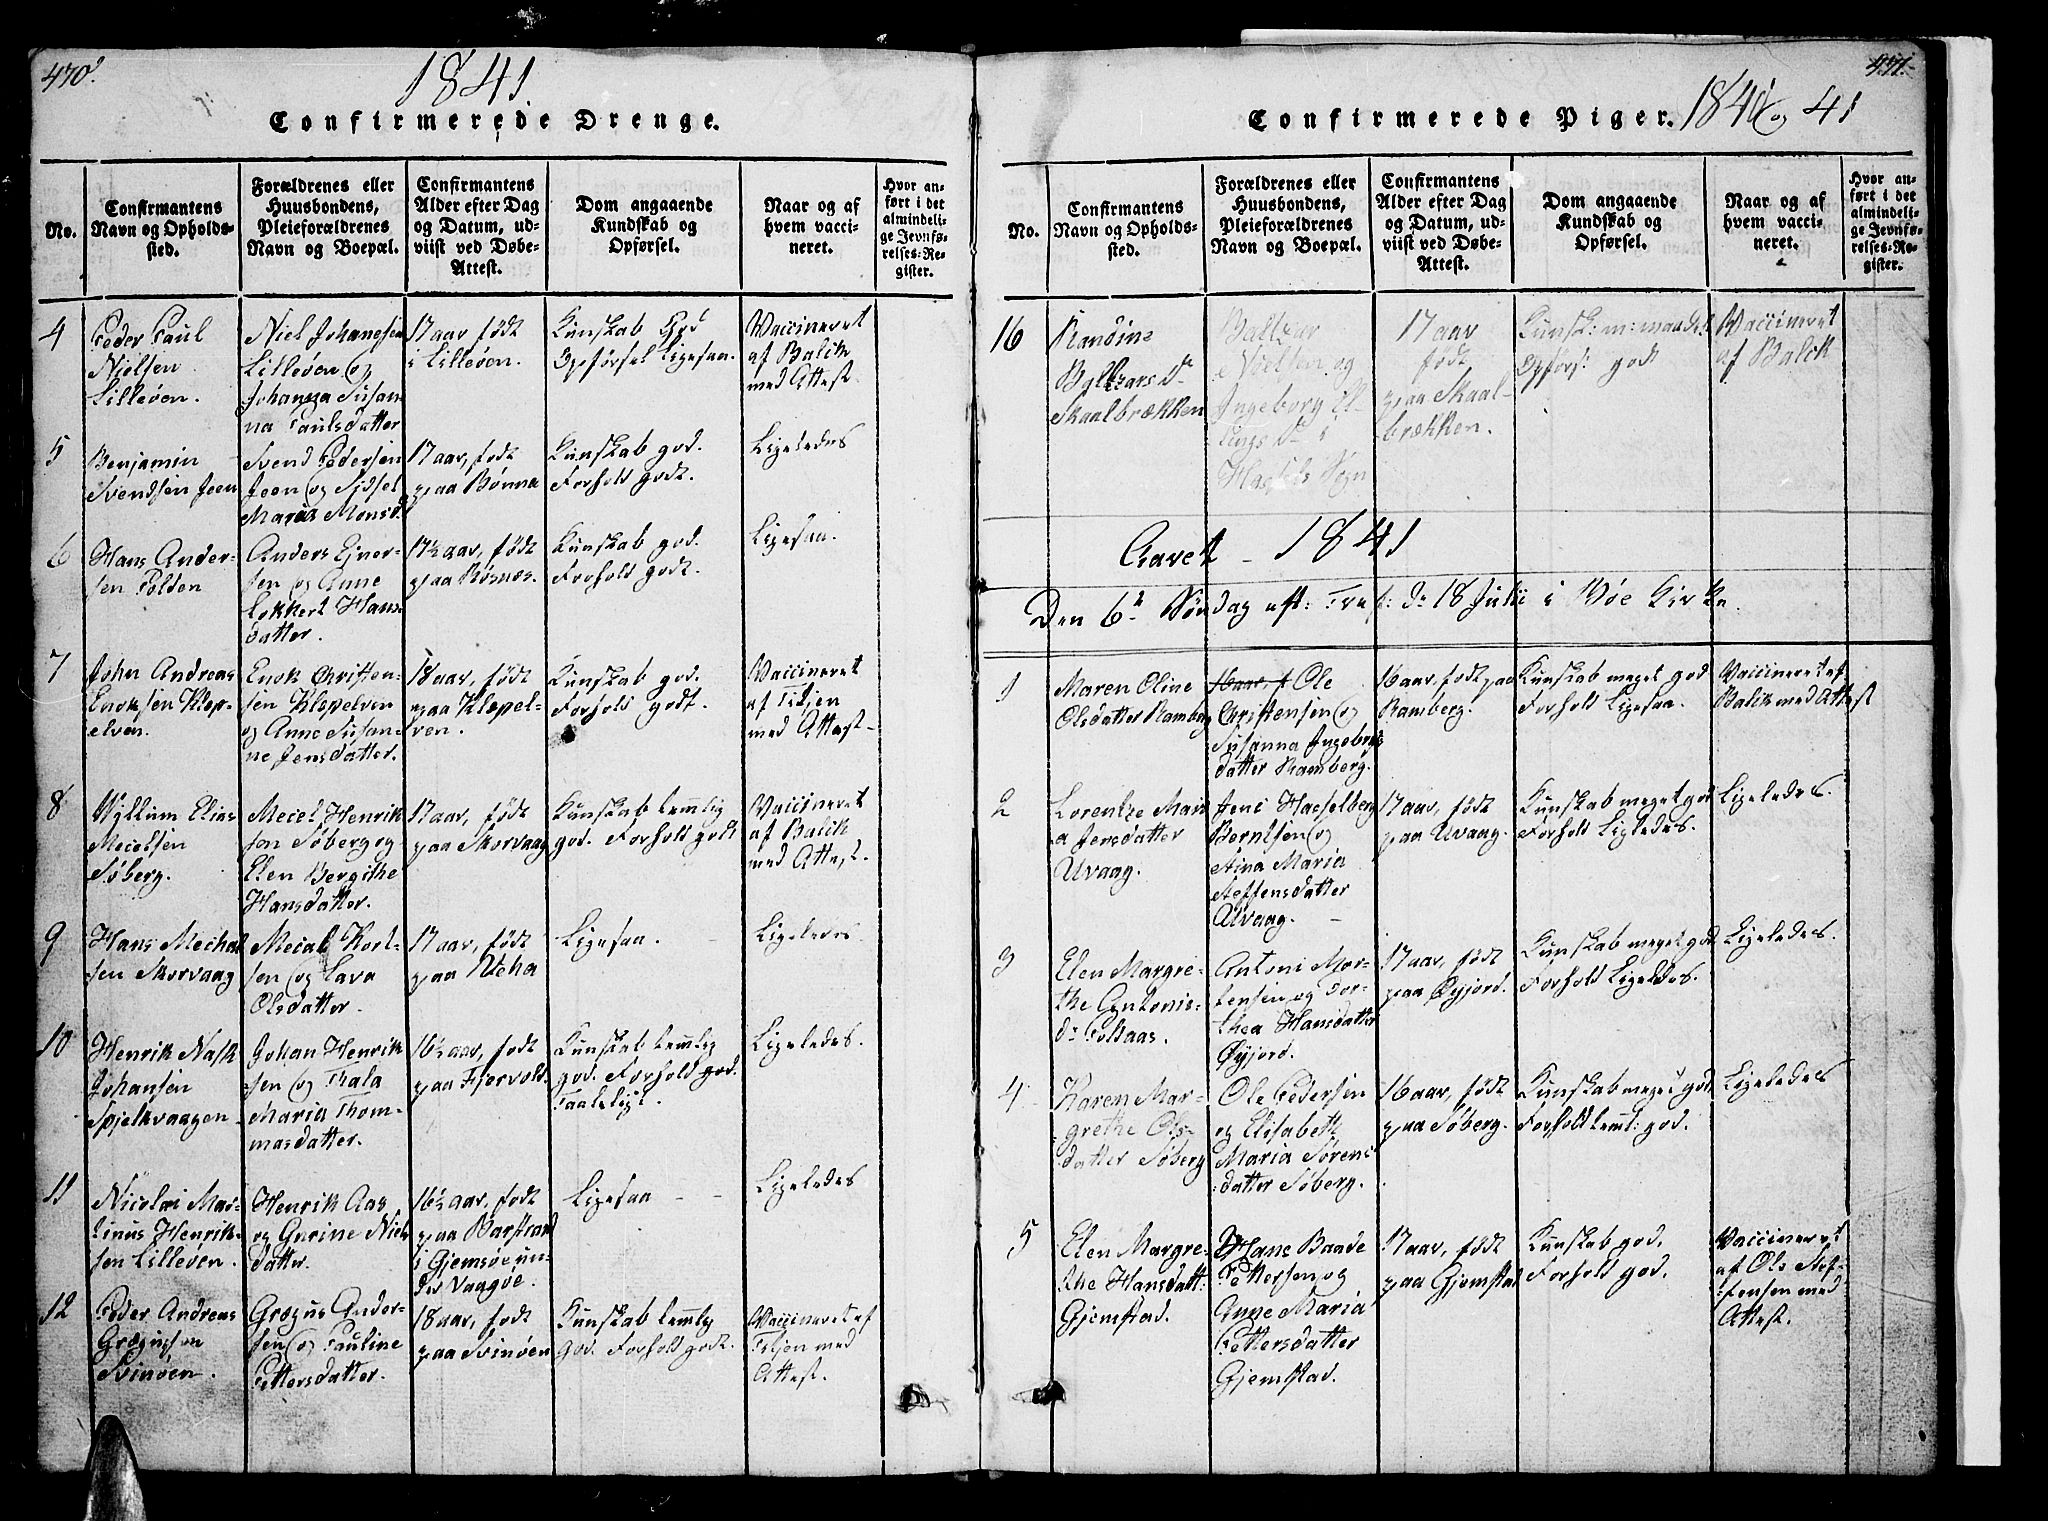 470.
1841
Confirmerede Drenge.
No.
Confirmantens Navn og Opholds-sted.
Forældrenes eller Huusbondens, Pleieforældrenes Navn og Boepæl.
Confirmantens Alder efter Dag og Datum, ud-viist ved Døbe-Attest.
Dom angaaende Kundskab og Opførsel.
Naar og af hvem vacci-neret.
Hvor an-ført i det almindeli-ge Jevnfø-relses-Re-gister.
4
Peder Paul
Nielsen
Lilleøen.
Niel Johanesen
Lilleøen og
Johanna Susan
na Paulsdatter
17 aar født
i Lilleøen.
Kunskab God
Opførsel Ligesaa.
Vaccineret
af Balik
med Attest.
5
Benjamin
Svendsen Jeen
Svend Pedersen
Jeen og Sidsel
Maria Monsd.
17 aar, født
paa Bønna
Kunskab god.
Forhold godt.
Ligeledes
6
Hans Ander-
sen Polden
Anders Ejner-
sen og Anne
Lokkert Hans
datter.
17½ aar, født
paa Røsnes.
Kunskab god.
Forhold godt.
Ligesaa.
7
John Andreas
Enoksen Klep-
elven.
Enok Christen-
sen Klepelven
og Anne Susan-
ne Jensdatter.
18 aar, født
paa Klepel-
ven.
Kunskab god.
Forhold godt.
Vaccineret
af Tidjen
med Attest-
8
Wyllum Elias
Mecelsen
Søberg.
Mecel Henrik
sen Søberg og
Elen Bergithe
Hansdatter.
17 aar, født
paa Skorvaag
Kunskab temmlig
god. Forhold godt
Vaccineret
af Balik
med Attest.
9
Hans Mechal
sen Skorvaag
Mecal Kort-
sen og Lava
Olsdatter.
17 aar, født
paa
Ligesaa.
Ligeledes.
10
Henrik Nask
Johansen
Spjelkvaagen
Johan Henrik
sen og Tala
Maria Thom-
masdatter.
16½ aar, født
paa Fjærvold.
Kunskab temmlig
god. Forhold god.
Taaleligt.
Ligeledes.
11
Nicolai Mar-
tinus Henrik-
sen Lilleøen.
Henrik Aas
og Gurine Niels
datter.
16½ aar, født
paa Barstrand
i Gjemsøe un-
der Vaagøe.
Ligesaa
Ligeledes
12
Peder Andreas
Grægussen
Svinøen.
Grægus Ander-
sen og Pauline
Pettersdatter.
18 aar, født
paa Svinøen
Kunskab temmlig
god. Forhold godt.
Vaccineret af
Tidjen med
Attest.
471.
Confirmerede Piger. 1840 og 41
No.
Confirmantens Navn og Opholds-sted.
Forældrenes eller Huusbondens, Pleieforældrenes Navn og Boepæl.
Confirmantens Alder efter Dag og Datum, ud-viist ved Døbe-Attest.
Dom angaaende Kundskab og Opførsel.
Naar og af hvem vacci-neret.
Hvor an-ført i det almindeli-ge Jevnfø-relses-Re-gister.
16
Randine
Baltzars Dr
Skaalbrækken
Baltzar
Nielsen og
Ingeborg El-
lings Dr i
Hassels Sogn
17 aar
født
paa Skaal-
brækken.
Kunsk: m: maadel.
Opførs: godt
Vaccineret
af Balik
Aaret - 1841
Den 6te Søndag eft: Tref: d: 18 Julii i Bøe Kirke.
1
Maren Oline
Olsdatter Ramberg
16 aar, f Ole
Christensen og
Susanna Ingeborgs
datter Ramberg.
16 aar, født paa
Ramberg.
Kunskab meget god
Forhold Ligesaa.
Vaccineret af
Balik med Attest
2
Lorentze Mari
a Jensdatter
Uvaag.
Jens Hasselberg
Berntsen og
Stina Maria
Steffensdatter
Uvaag.
17 aar, født
paa Uvaag.
Kunskab meget god
Forhold Ligeledes.
Ligeledes.
3
Elen Margre-
the Antonis-
dr Polsaas.
Antoni Mor-
tensen og Dor-
thea Hansdatter
Øyjord.
17 aar, født
paa Øyjord.
Kunskab meget god
Forhold Ligeledes.
Ligeledes.
4
Karen Mar-
grethe Ols-
datter Søberg
Ole Pedersen
og Elisabeth
Maria Sørens
datter Søberg.
16 aar, født
paa Søberg.
Kunskab meget god.
Forhold temt: god.
Ligeledes
5
Elen Margre-
the Hansdatt:
Gjemstad.
Hans Baade
Pettersen og
Anne Maria
Pettersdatter
Gjemstad.
17 aar, født
paa Gjemstad
Kunskab god.
Forhold god.
Vaccineret
af Ole Stef-
fensen med
Attest.